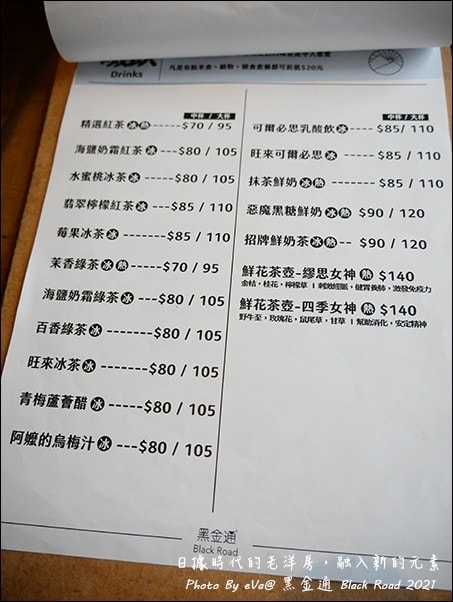 Drinks
凡是有點米食，鍋物，輕食套餐都可折抵$20元
中杯 / 大杯
精選紅茶冰熱------$70 / 95
海鹽奶霜紅茶冰---$80 / 105
水蜜桃冰茶冰-----$80 / 105
翡翠檸檬紅茶冰---$85 / 110
莓果冰茶冰-------$85 / 110
茉香綠茶冰熱-----$70 / 95
海鹽奶霜綠茶冰---$80 / 105
百香綠茶冰-------$80 / 105
旺來冰茶冰-------$80 / 105
青梅蘆薈醋冰-----$80 / 105
阿嬤的烏梅汁冰---$80 / 105
中杯 / 大杯
可爾必思乳酸飲冰---$85/ 110
旺來可爾必思冰-----$85 / 110
抹茶鮮奶冰熱-------$85 / 110
惡魔黑糖鮮奶冰熱 $90 / 120
招牌鮮奶茶冰熱-- $90 / 120
鮮花茶壺-繆思女神熱 $140
金桔，桂花，檸檬草 | 刺激經脈，健胃養肺，激發免疫力
鮮花茶壺-四季女神熱 $140
野牛至，玫瑰花，鼠尾草，甘草 | 幫助消化，安定精神
黑金通
Black Road
日據時代的老洋房，融入新的元素
Photo By eVa@ 黑金通 Black Road 2021